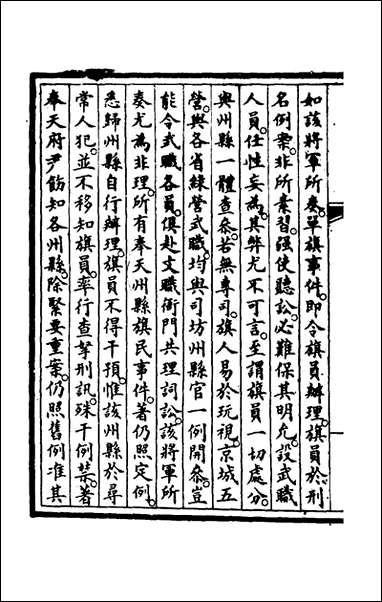 如該將軍所奏單旗事件。即令旗員辦理。旗員於刑
名例案。非所素習。强使聽訟。必難保其明允。設武職
人員。任性妄為。其弊尤不可言。至謂旗員一切處分。
與州縣一體查叅。若無專司。旗人易於玩視。京城五
營。與各省綠營武職。均與司坊州縣官一例開叅。豈
能令武職各員。俱赴文職衙門共理詞訟。該將軍所
奏尤為非理。所有奉天州縣旗民事件。著仍照定例。
悉歸州縣自行辦理。旗員不得干預。惟該州縣於尋
常人犯。並不移知旗員。率行查拏刑訊。殊干例禁。著
奉天府尹飭知各州縣。除緊要重案。仍照舊例准其